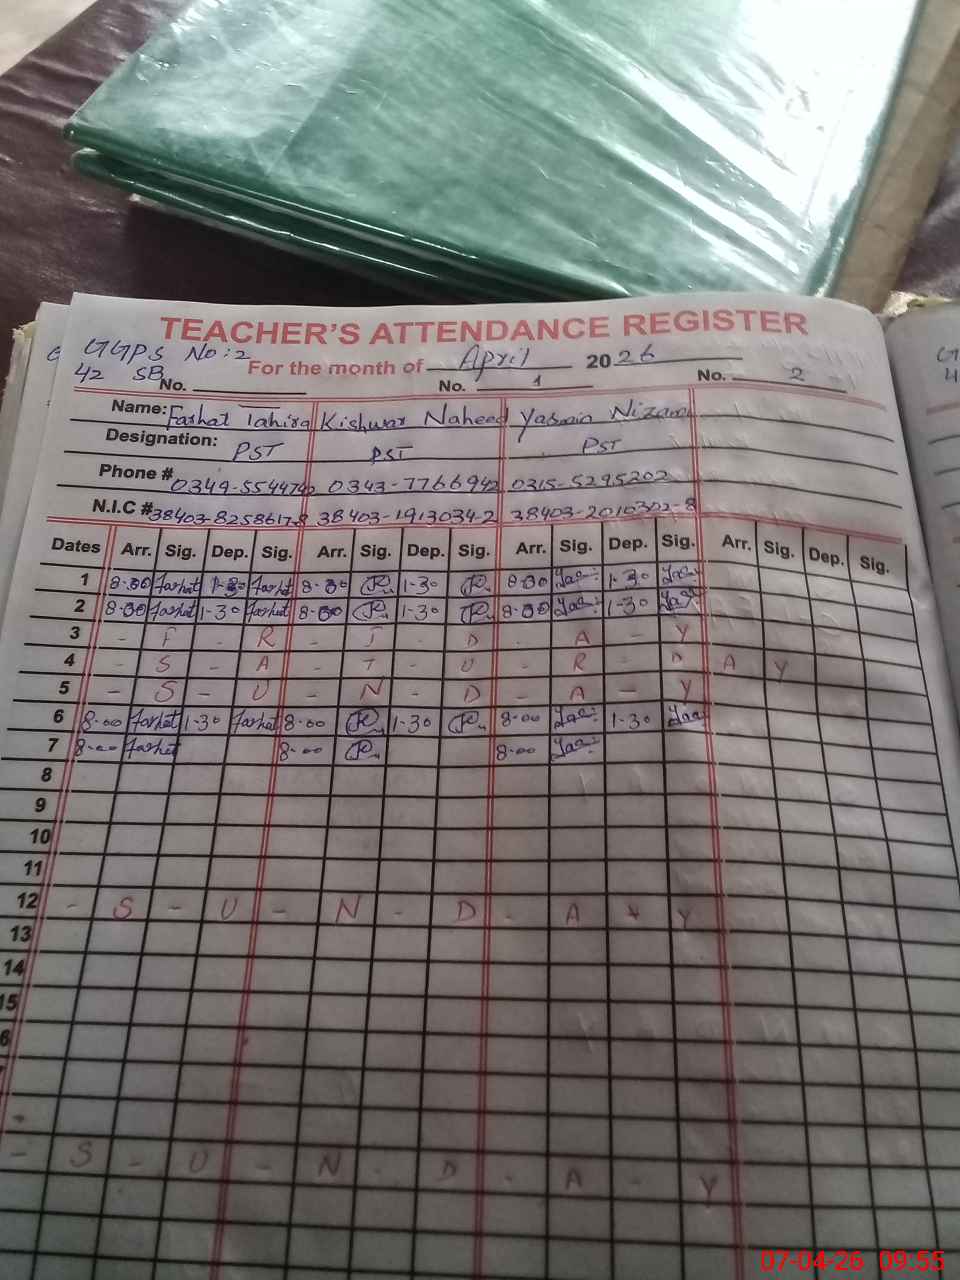 TEACHER'S ATTENDANCE REGISTER
GGPS No:2
42 SB
For the month of April 2026
No. No. 1 No. 2
Name: Farhat Tahira Kishwar Naheed Yasmin Nizami
Designation: PST PST PST
Phone # 0349-5544742 0343-7766942 0315-5295202
N.I.C # 38403-8258617-8 38403-1913034-2 38403-2010302-8
Dates Arr. Sig. Dep. Sig. Arr. Sig. Dep. Sig. Arr. Sig. Dep. Sig. Arr. Sig. Dep. Sig.
1 8-00 Farhat 1-30 Farhat 8-00 1-30 8-00 1-30
2 8-00 Farhat 1-30 Farhat 8-00 1-30 8-00 1-30
3 - F - R - I - D - A - Y
4 - S - A - T - U - R - D A Y
5 - S - U - N - D - A - Y
6 8-00 Farhat 1-30 Farhat 8-00 1-30 8-00 1-30
7 8-00 Farhat 8-00 8-00
8
9
10
11
12 - S - U - N - D - A - Y
13
14
15
6
- S - U - N - D - A - Y
07-04-26 09:55